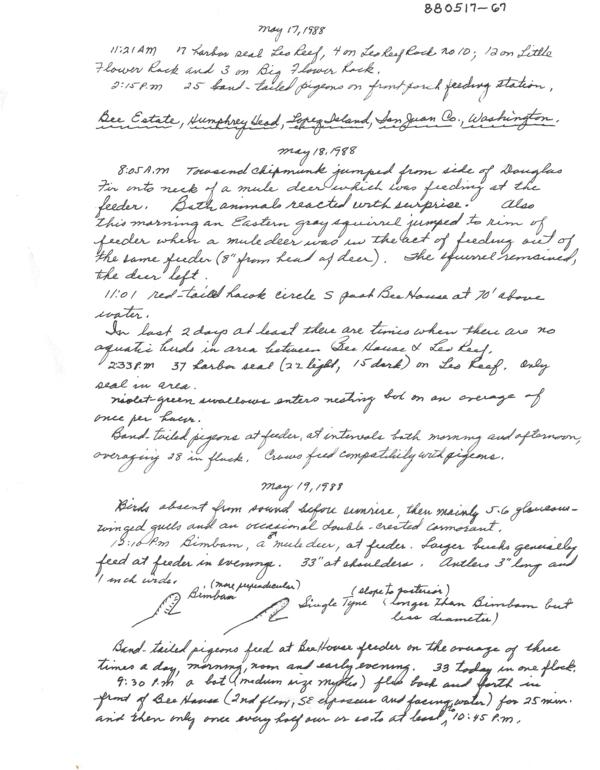 880517-67
May 17, 1988
11:21 AM 17 harbor seal Leo Reef, 4 on Leo Reef Rock no 10; 12 on Little
Flower Rock and 3 on Big Flower Rock.
2:15 P.M 25 band-tailed pigeons on front porch feeding station,
Bee Estate, Humphrey Head, Lopez Island, San Juan Co., Washington.
May 18, 1988
8:05 A.M Townsend chipmunk jumped from side of Douglas
Fir onto neck of a mule deer which was feeding at the
feeder. Both animals reacted with surprise. Also
this morning an Eastern gray squirrel jumped to rim of
feeder when a mule deer was in the act of feeding out of
the same feeder (8" from head of deer). The squirrel remained,
the deer left.
11:01 red-tailed hawk circle S past Bee House at 70' above
water.
In last 2 days at least there are times when there are no
aquatic birds in area between Bee House & Leo Reef.
2:33 P.M 37 harbor seal (22 light, 15 dark) on Leo Reef. Only
seal in area.
Violet-green swallows enters nesting box on an average of
once per hour.
Band-tailed pigeons at feeder, at intervals both morning and afternoon,
averaging 28 in flock. Crows feed compatibility with pigeons.
May 19, 1988
Birds absent from sound before sunrise, then mainly 5-6 glaucous-
winged gulls and an occasional double-crested cormorant.
Pm Bimbam, a ♂ mule deer, at feeder. Larger bucks generally
feed at feeder in evenings. 33" at shoulders. Antlers 3" long and
1 inch wide.
(more perpendicular) (slope to posterior)
Bimbam Single Tyne (longer than Bimbam but
less diameter)
Band-tailed pigeons feed at Bee House feeder on the average of three
times a day, morning, noon and early evening. 33 today in one flock.
9:30 P.M a bat (medium size myotis) flew back and forth in
front of Bee House (2nd floor, SE exposure and facing water) for 25 min.
and then only once every half our or so to at least to 10:45 P.M.